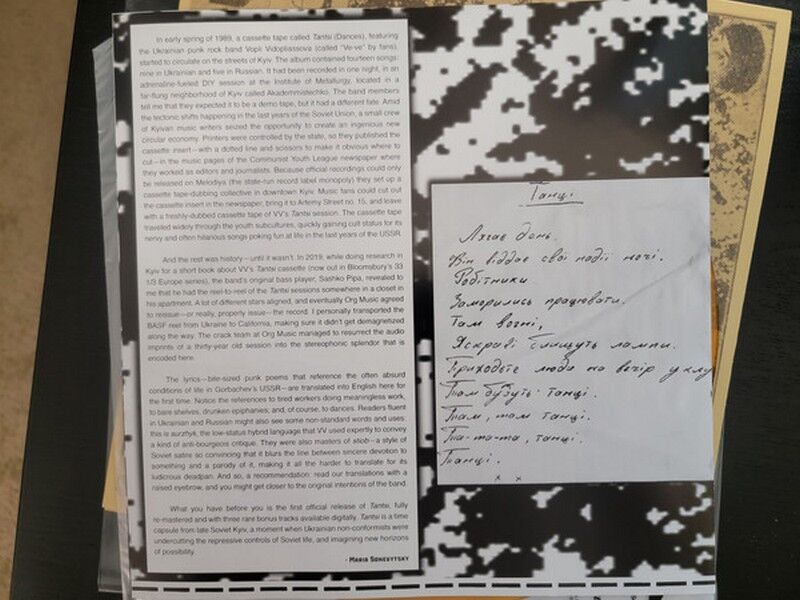 In early spring of 1989, a cassette tape called Tantsi (Dances), featuring
the Ukrainian punk rock band Vopli Vidopliassova (called "Ve-ve" by fans),
started to circulate on the streets of Kyiv. The album contained fourteen songs:
nine in Ukrainian and five in Russian. It had been recorded in one night, in an
adrenaline-fueled DIY session at the Institute of Metallurgy, located in a
far-flung neighborhood of Kyiv called Akademmistechko. The band members
tell me that they expected it to be a demo tape, but it had a different fate. Amid
the tectonic shifts happening in the last years of the Soviet Union, a small crew
of Kyivan music writers seized the opportunity to create an ingenious new
circular economy. Printers were controlled by the state, so they published the
cassette insert—with a dotted line and scissors to make it obvious where to
cut—in the music pages of the Communist Youth League newspaper where
they worked as editors and journalists. Because official recordings could only
be released on Melodiya (the state-run record label monopoly) they set up a
cassette tape-dubbing collective in downtown Kyiv. Music fans could cut out
the cassette insert in the newspaper, bring it to Artemy Street no. 15, and leave
with a freshly-dubbed cassette tape of VV's Tantsi session. The cassette tape
travelled widely through the youth subcultures, quickly gaining cult status for its
nervy and often hilarious songs poking fun at life in the last years of the USSR.
And the rest was history—until it wasn't. In 2019, while doing research in
Kyiv for a short book about VV's Tantsi cassette (now out in Bloomsbury's 33
1/3 Europe series), the band's original bass player, Sashko Pipa, revealed to
me that he had the reel-to-reel of the Tantsi sessions somewhere in a closet in
his apartment. A lot of different stars aligned, and eventually Org Music agreed
to reissue—or really, properly issue—the record. I personally transported the
BASF reel from Ukraine to California, making sure it didn't get demagnetized
along the way. The crack team at Org Music managed to resurrect the audio
imprints of a thirty-year old session into the stereophonic splendor that is
encoded here.
The lyrics—bite-sized punk poems that reference the often absurd
conditions of life in Gorbachev's USSR—are translated into English here for
the first time. Notice the references to tired workers doing meaningless work,
to bare shelves, drunken epiphanies; and, of course, to dances. Readers fluent
in Ukrainian and Russian might also see some non-standard words and uses:
this is surzhyk, the low-status hybrid language that VV used expertly to convey
a kind of anti-bourgeois critique. They were also masters of stiob—a style of
Soviet satire so convincing that it blurs the line between sincere devotion to
something and a parody of it, making it all the harder to translate for its
ludicrous deadpan. And so, a recommendation: read our translations with a
raised eyebrow, and you might get closer to the original intentions of the band.
What you have before you is the first official release of Tantsi, fully
re-mastered and with three rare bonus tracks available digitally. Tantsi is a time
capsule from late Soviet Kyiv, a moment when Ukrainian non-conformists were
undercutting the repressive controls of Soviet life, and imagining new horizons
of possibility.
- Maria Sonevytsky
Танці.
Лягає день.
Він віддає свої події ночі.
Робітники
Заморились працювати.
Там вогні,
Яскраві блищуть лампи.
Приходьте люди на вечір у клу
Там будуть танці.
Там, там танці.
Та-та-та, танці.
Танці.